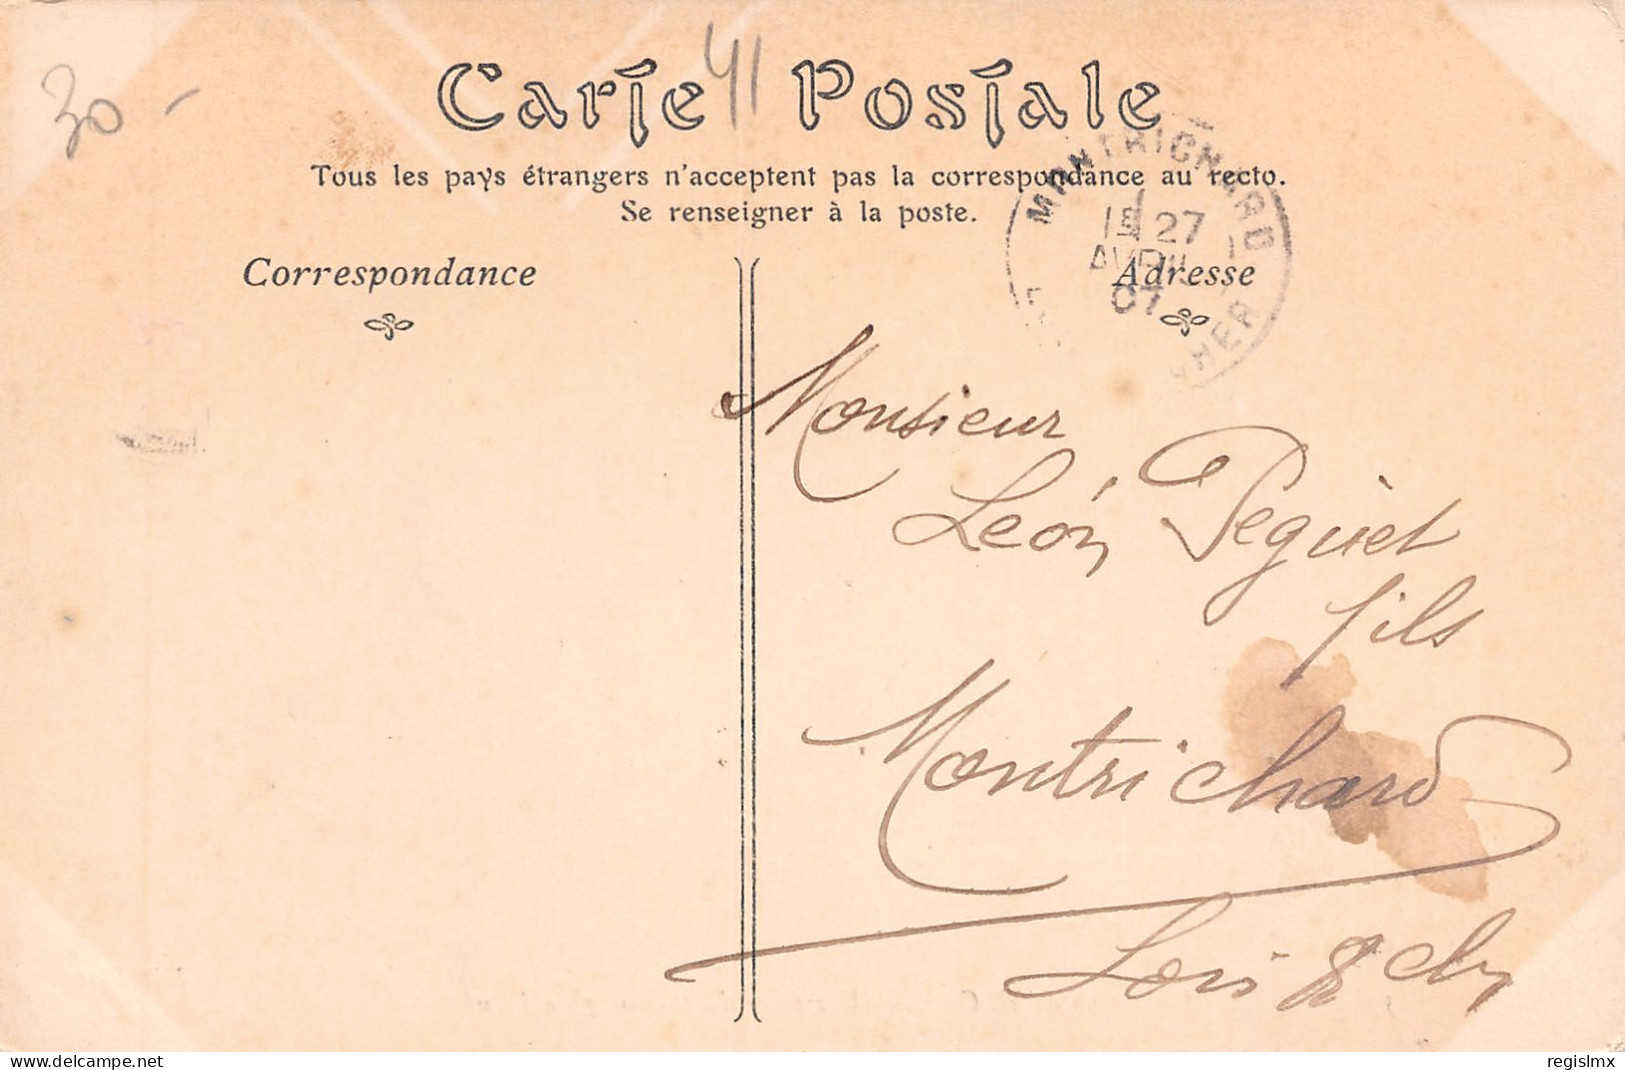 30 -
41
Carte Postale
Tous les pays étrangers n'acceptent pas la correspondance au recto.
Se renseigner à la poste.
MONTRICHARD
27
AVRIL
07
CHER
Correspondance
Adresse
Monsieur
Léon Peguet
fils
Montrichard
Loir & Cher
www.delcampe.net
regislmx